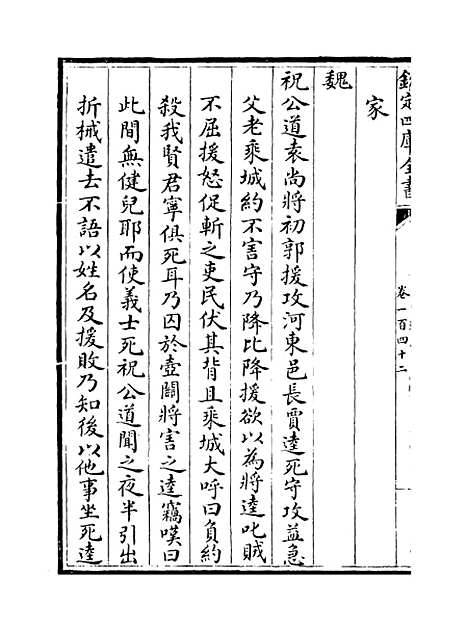 欽定四庫全書
卷一百四十二
家
魏
祝公道袁尚將初郭援攻河東邑長賈逵死守攻益急
父老乘城約不害守乃降比降援欲以為將逵叱賊
不屈援怒促斬之吏民伏其背且乘城大呼曰負約
殺我賢君寧俱死耳乃囚於壺關將害之逵竊嘆曰
此間無健兒耶而使義士死祝公道聞之夜半引出
折械遣去不語以姓名及援敗乃知後以他事坐死逵